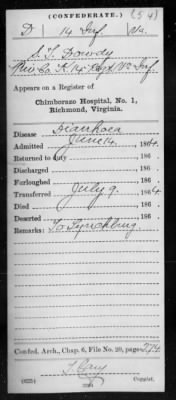 (CONFEDERATE.) (54)
D 14 Inf. Va.
S. T. Dowdy
Co. K. 14 Regt Va Inf
Appears on a Register of
Chimborazo Hospital, No. 1,
Richmond, Virginia.
Disease Diarrhoea
Admitted June 14, 1864.
Returned to duty , 186 .
Discharged , 186 .
Furloughed , 186 .
Transferred July 9. , 1864.
Died , 186 .
Deserted , 186 .
Remarks: To Lynchburg.
Confed. Arch., Chap. 6, File No. 20, page 274
(635) Copyist.